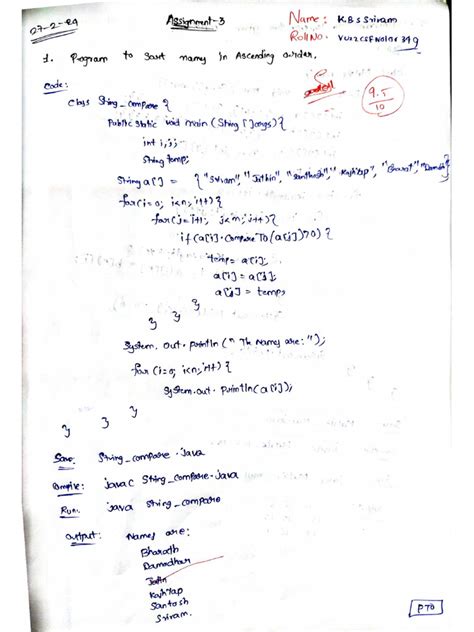 27-2-24
Assignment-3
Name: K.B.S Sriram
Roll No:
1. Program to sort names in Ascending order.
9.5
10
Code:
Class String_compare {
Public static void main (String []args) {
int i,j;
String temp;
String a[] = { "Sriram", "Jathin", "Santhosh", "Kashyap",
for (i=0; i<n; i++) {
for (j=i+1; j<n; j++) {
if (a[i].CompareTo(a[j])>0) {
temp = a[i];
a[i] = a[j];
a[j] = temp;
}
} }
System.out.println (" The Names are: ");
for (i=0; i<n; i++) {
System.out.println(a[i]);
} } }
Save: String_compare.java
Compile: javac String_compare.java
Run: java String_compare
Output: Names are:
Bharath
Damodhar
Kashyap
Santosh
Sriram.
PTO